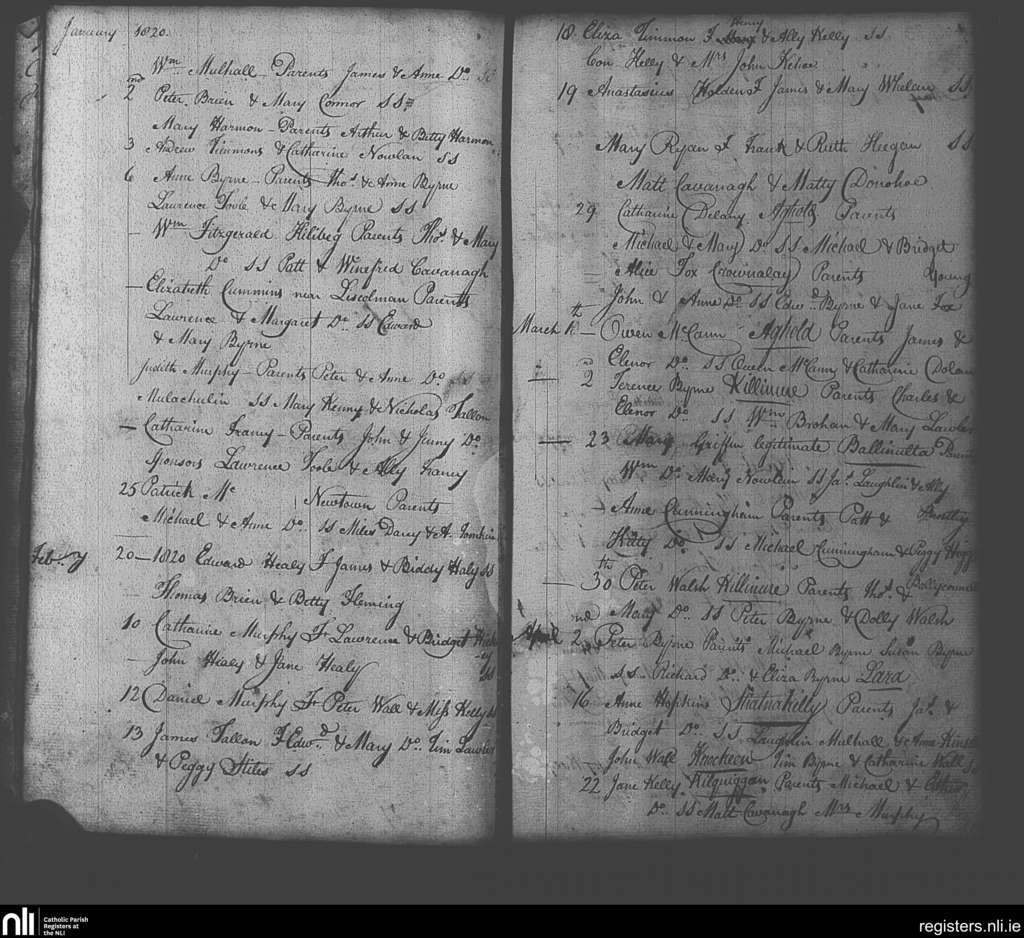 January 1820.
Wm Mulhall - Parents James & Anne Do. SS
2nd Peter Brien & Mary Connor SS
Mary Harmon - Parents Arthur & Betty Harmon
3 Andrew Timmons & Catharine Nowlan SS
6 Anne Byrne - Parents Thos. & Anne Byrne
Laurence Toole & Mary Byrne SS
- Wm Fitzgerald Kilibeg Parents Thos. & Mary
Do SS Patt & Winefred Cavanagh
- Elizabeth Cummins near Liscolman Parents
Lawrence & Margaret Do. SS Edward
& Mary Byrne
Judith Murphy - Parents Peter & Anne Do.
Mulachulin SS Mary Kenny & Nicholas Fallon
- Catharine Franey - Parents John & Jenny Do.
Sponsors Lawrence Toole & Ally Franey
25 Patrick Mc Newtown Parents
Michael & Anne Do. SS Miles Darcy & A. Tomkin
Feb.y 20 - 1820 Edward Healy F James & Biddy Haly SS
Thomas Brien & Betty Fleming
10 Catharine Murphy F Lawrence & Bridget
- John Healy & Jane Healy SS
12 Daniel Murphy Fr Peter Wall & Miss Kelly SS
13 James Fallon F Edwd. & Mary Do. Tim Lawler
& Peggy Stiles SS
18 Eliza Timmon F Henry & Ally Kelly SS
Con Kelly & Mrs John Kehoe
19 Anastasius Holden F James & Mary Whelan SS
Mary Ryan F Frank & Ruth Heegan SS
Matt Cavanagh & Matty Donohoe
29 Catharine Delany Aghold Parents
Michael & Mary Do SS Michael & Bridget
- Alice Fox Crownalay Parents Young
John & Anne Do SS Edwd Byrne & Jane Fox
March 1th - Owen McCann Aghold Parents James &
Elenor Do. SS Owen McCann & Catharine Dolan
2 Terence Byrne Killinure Parents Charles &
Elenor Do SS Wm Brohan & Mary Lawler
23 Mary Griffin legitimate Ballinulta
Wm Do. Mary Nowlan SS Jas. Laughlin & Ally
- Anne Cunningham Parents Patt &
Kitty Do SS Michael Cunningham & Peggy
30th Peter Walsh Killinure Parents Thos. &
Mary Do SS Peter Byrne & Dolly Walsh
April 2nd Peter Byrne Parents Michael Byrne Susan Byrne
SS Richard Do. & Eliza Byrne Lara
16 Anne Hopkins Stratnakelly Parents Jas. &
Bridget Do. SS Laughlin Mulhall & Anne
John Wall Knockeen Tim Byrne & Catharine Wall SS
22 Jane Kelly Kilquiggan Parents Michael &
Do. SS Matt Cavanagh Mrs Murphy
nli Catholic Parish
Registers at
the NLI
registers.nli.ie